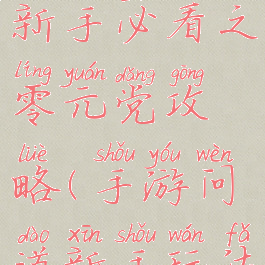 新手必看之
líng yuán dǎng gōng
零元党攻
lüè shǒu yóu wèn
略(手游问
dào xīn shǒu wán fǎ
道新手玩法